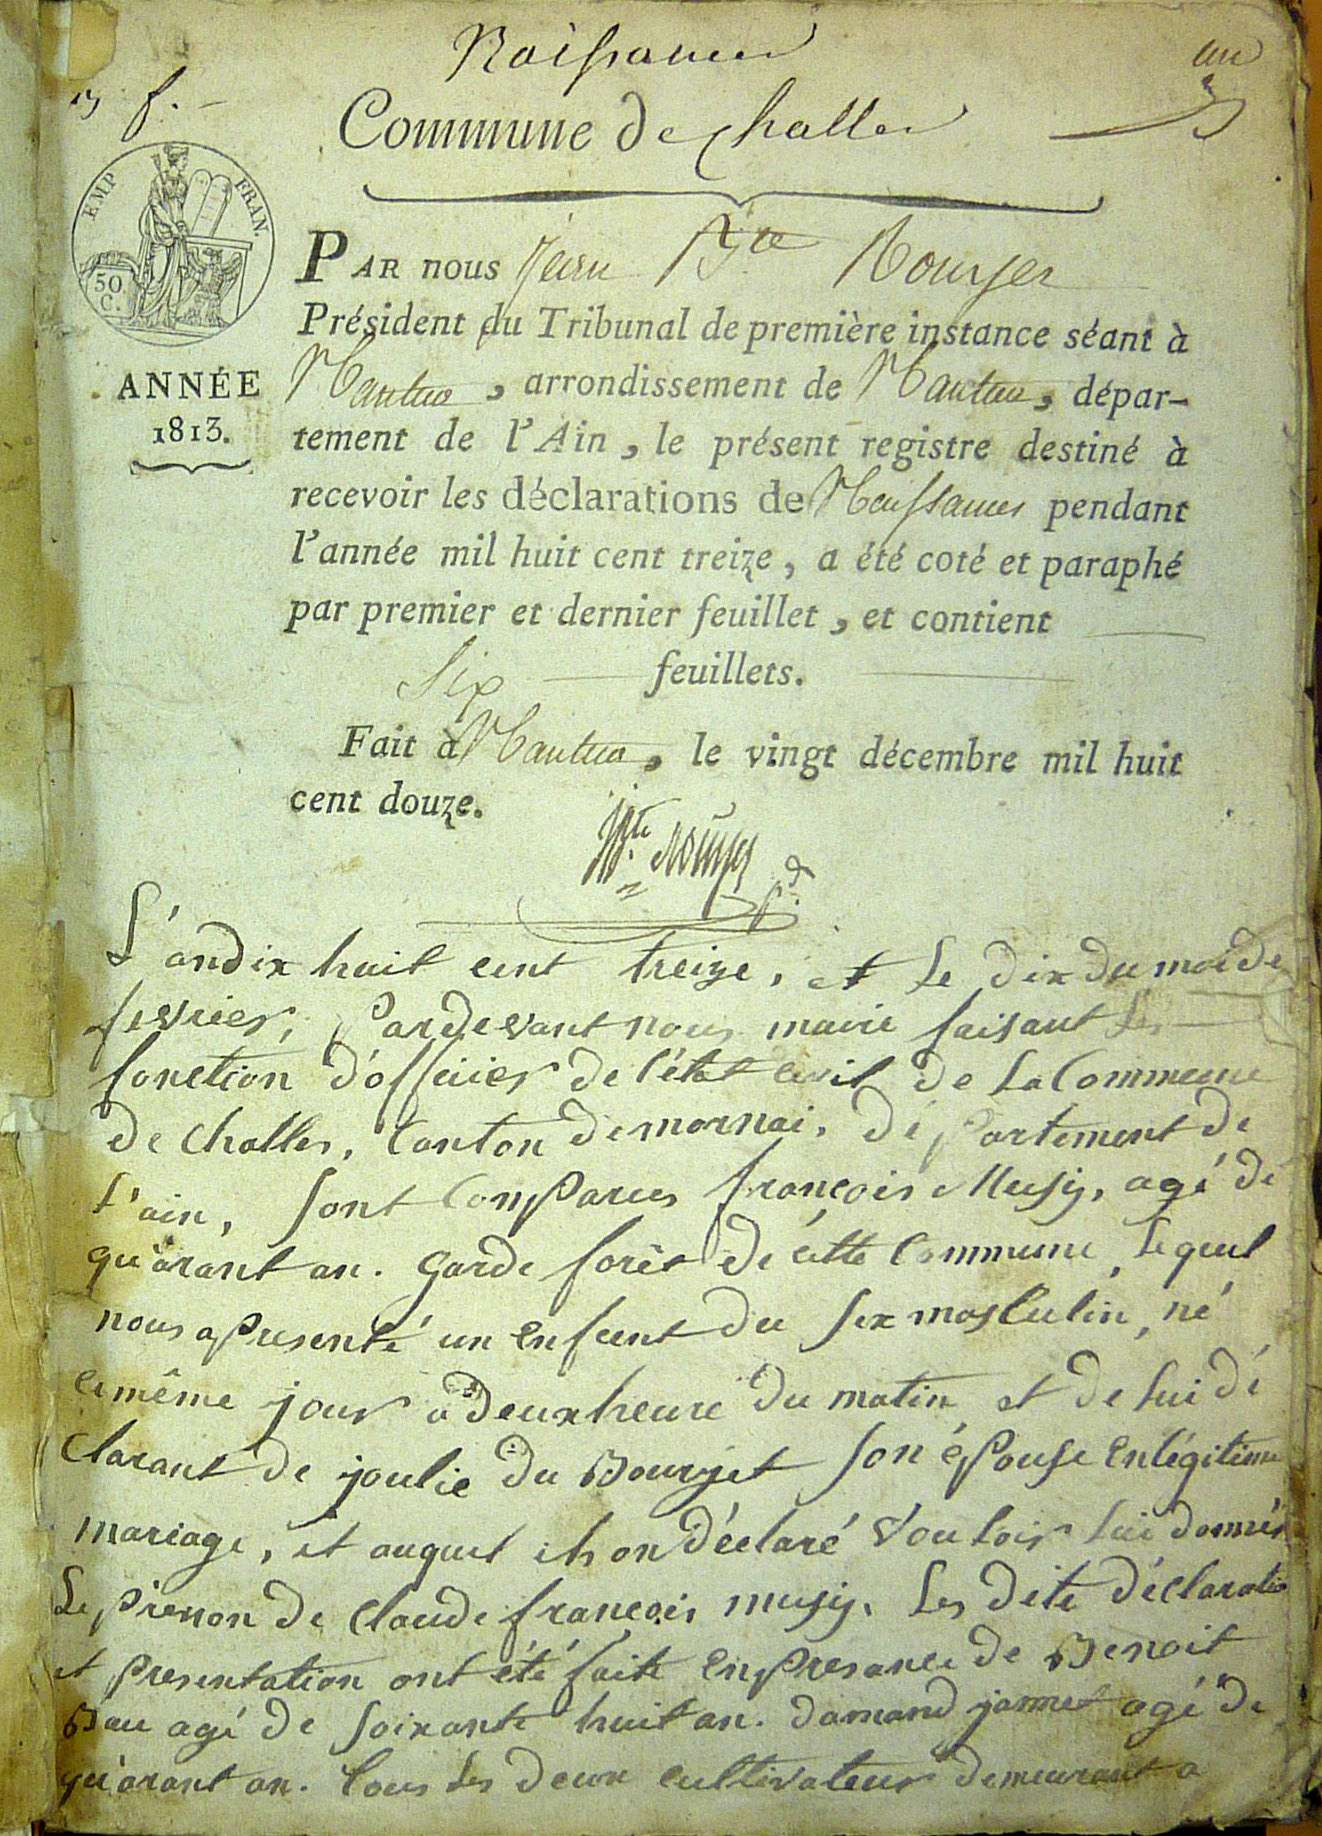 Naissances
un
Commune de challes
EMP FRAN.
50 C.
ANNÉE
1813.
PAR nous Jean Bte Rouyer
Président du Tribunal de première instance séant à
Nantua, arrondissement de Nantua, dépar-
tement de l'Ain, le présent registre destiné à
recevoir les déclarations de Naissances pendant
l'année mil huit cent treize, a été coté et paraphé
par premier et dernier feuillet, et contient
six feuillets.
Fait à Nantua, le vingt décembre mil huit
cent douze.
L'an dix huit cent treize, et le dix du moi de
fevrier, Pardevant nous maire faisant les
fonction d'officier de l'état civil de La Commune
de challes, Canton de mornai, département de
L'ain, sont Comparus françois Musy, agé de
quarant an. garde forêt de cette Commune, lequel
nous a presenté un enfant du sex masculin, né
ce même jour a deux heure du matin et de lui dé
clarant de joulie du Bourget son épouse en légitime
mariage, et auquel ils on déclaré vouloir lui donner
Le prenon de claude françois musy. Les dite déclaration
et presentation ont été faite en presance de Benoit
Bau agé de soixante huit an. damand jannet agé de
quarant an. tous les deux cultivateur demeurant a